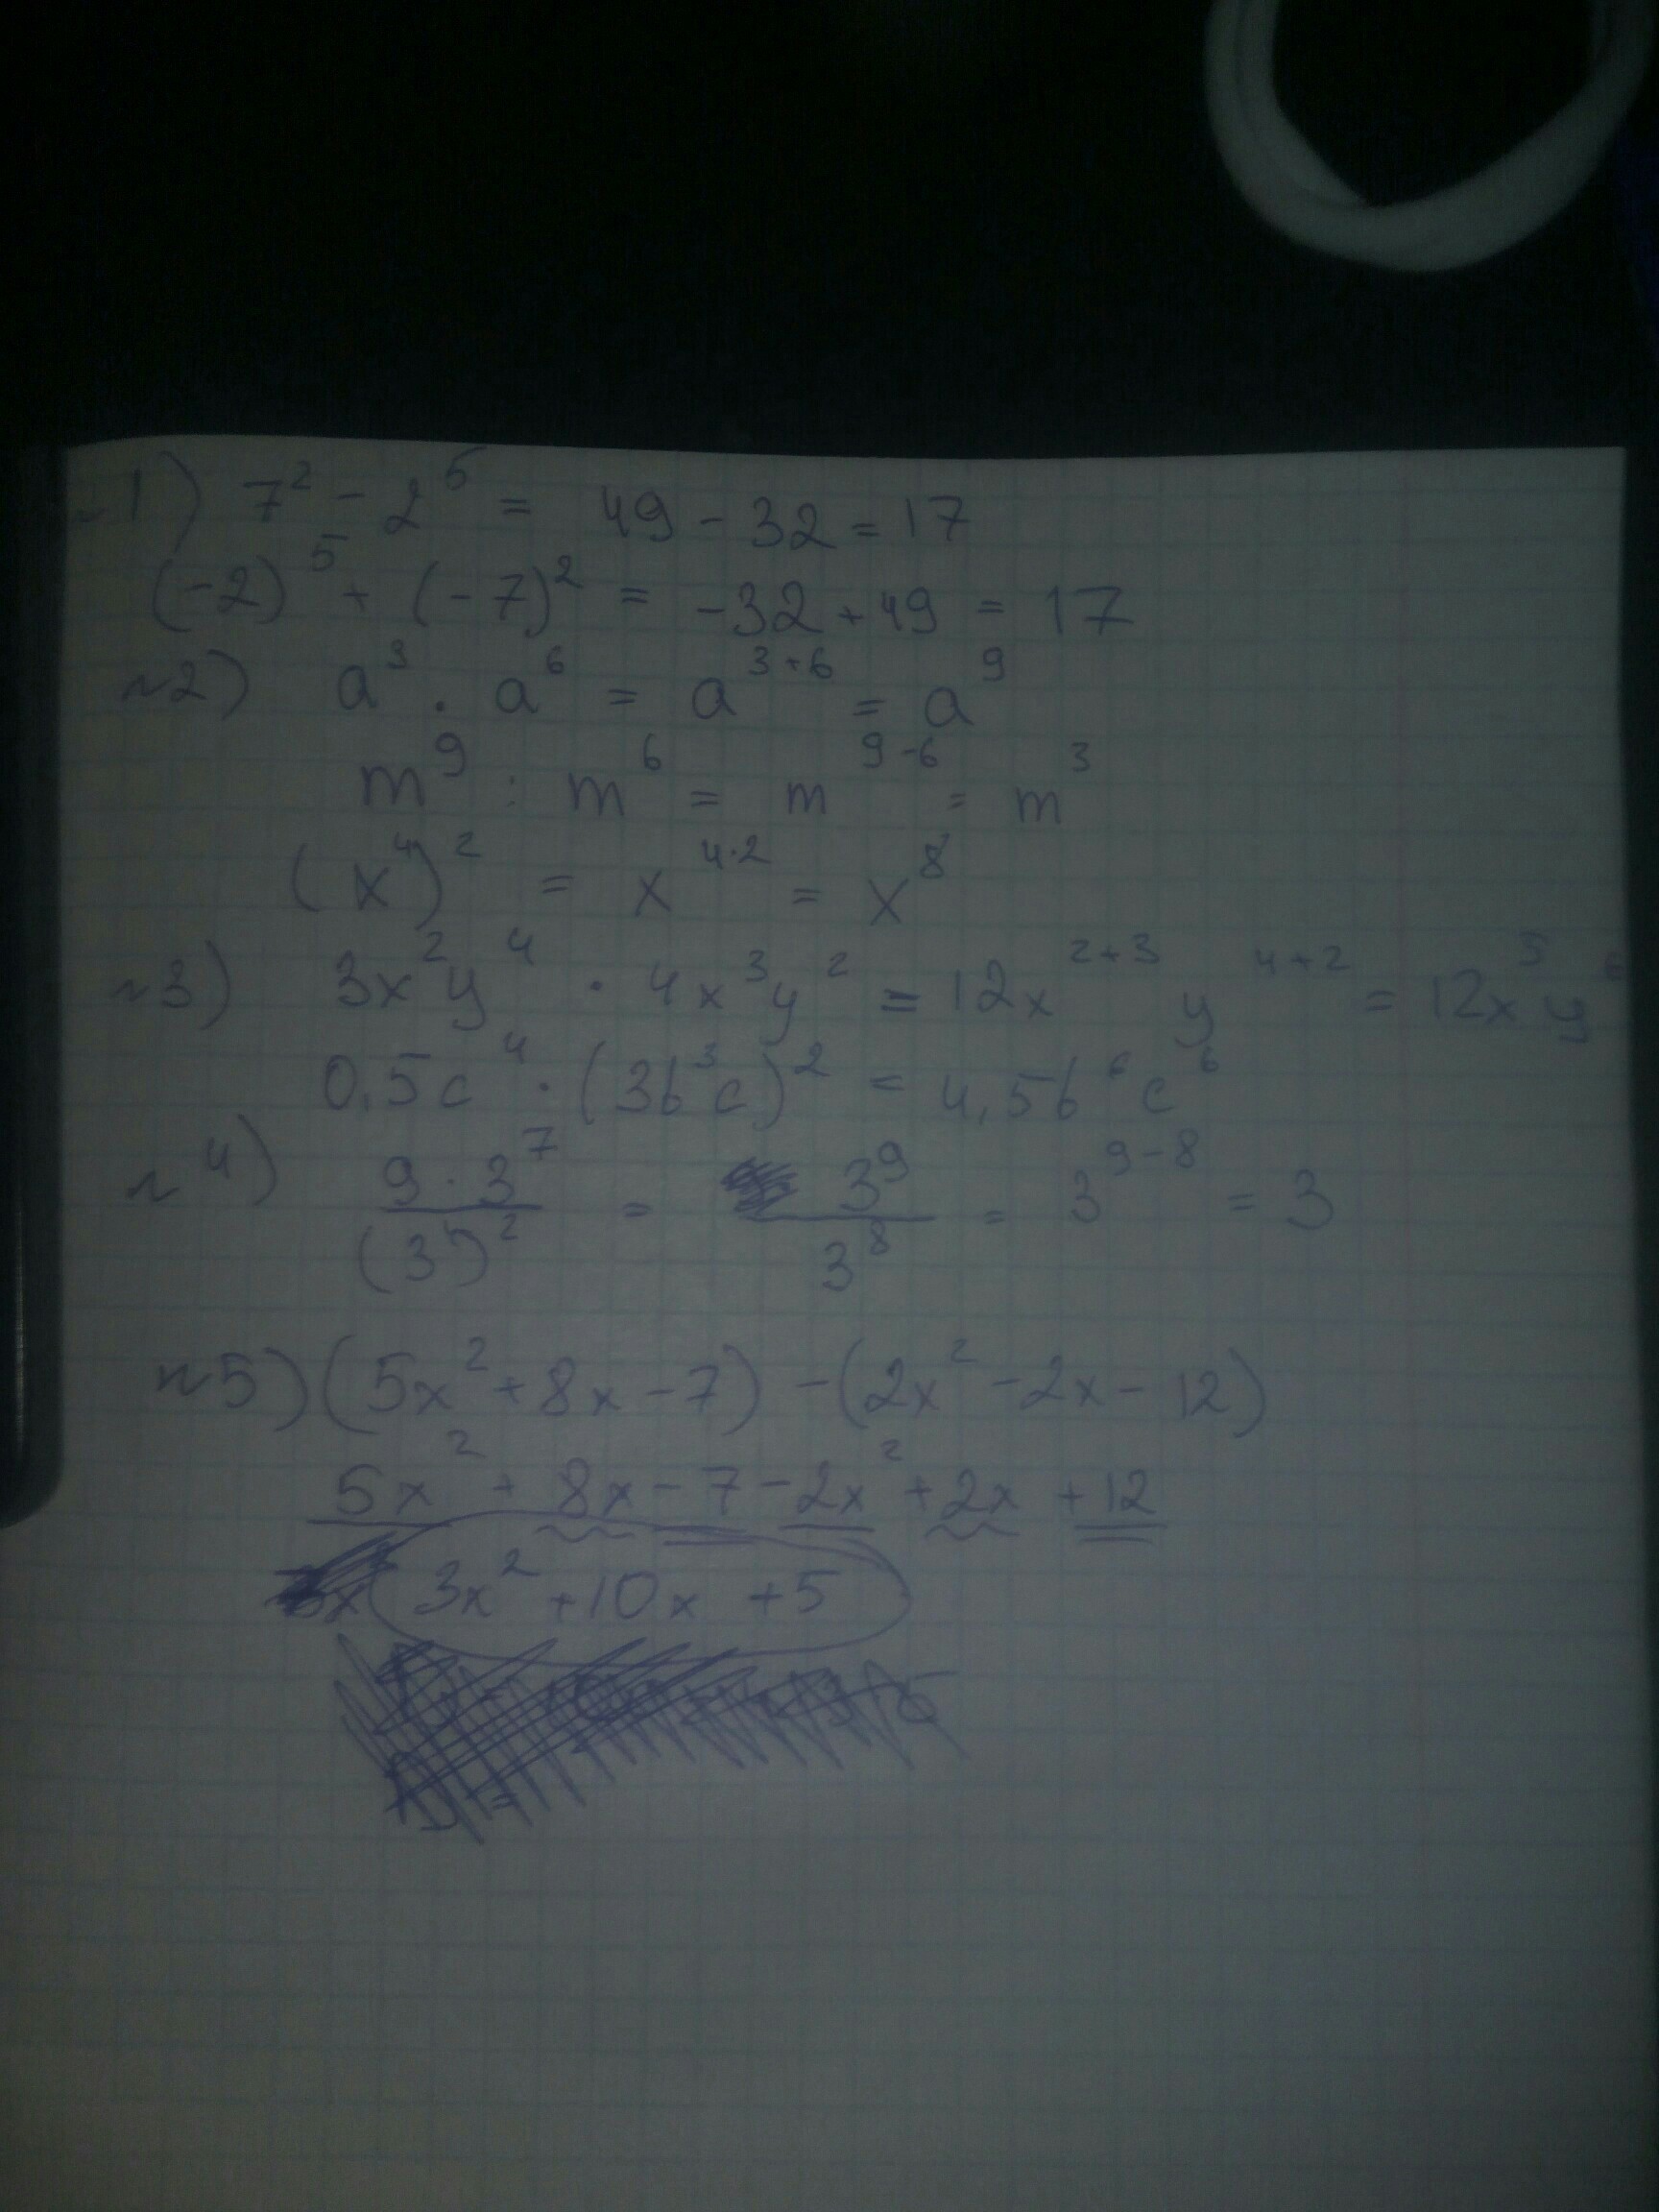 №1) 7² - 2⁵ = 49 - 32 = 17
(-2)⁵ + (-7)² = -32 + 49 = 17
№2) a³ · a⁶ = a³⁺⁶ = a⁹
m⁹ : m⁶ = m⁹⁻⁶ = m³
(x⁴)² = x⁴·² = x⁸
№3) 3x²y⁴ · 4x³y² = 12x²⁺³ y⁴⁺² = 12x⁵y⁶
0,5c⁴ · (3b³c)² = 4,5b⁶c⁶
№4) 9 · 3⁷ / (3⁴)² = 3⁹ / 3⁸ = 3⁹⁻⁸ = 3
№5) (5x² + 8x - 7) - (2x² - 2x - 12)
5x² + 8x - 7 - 2x² + 2x + 12
3x² + 10x + 5